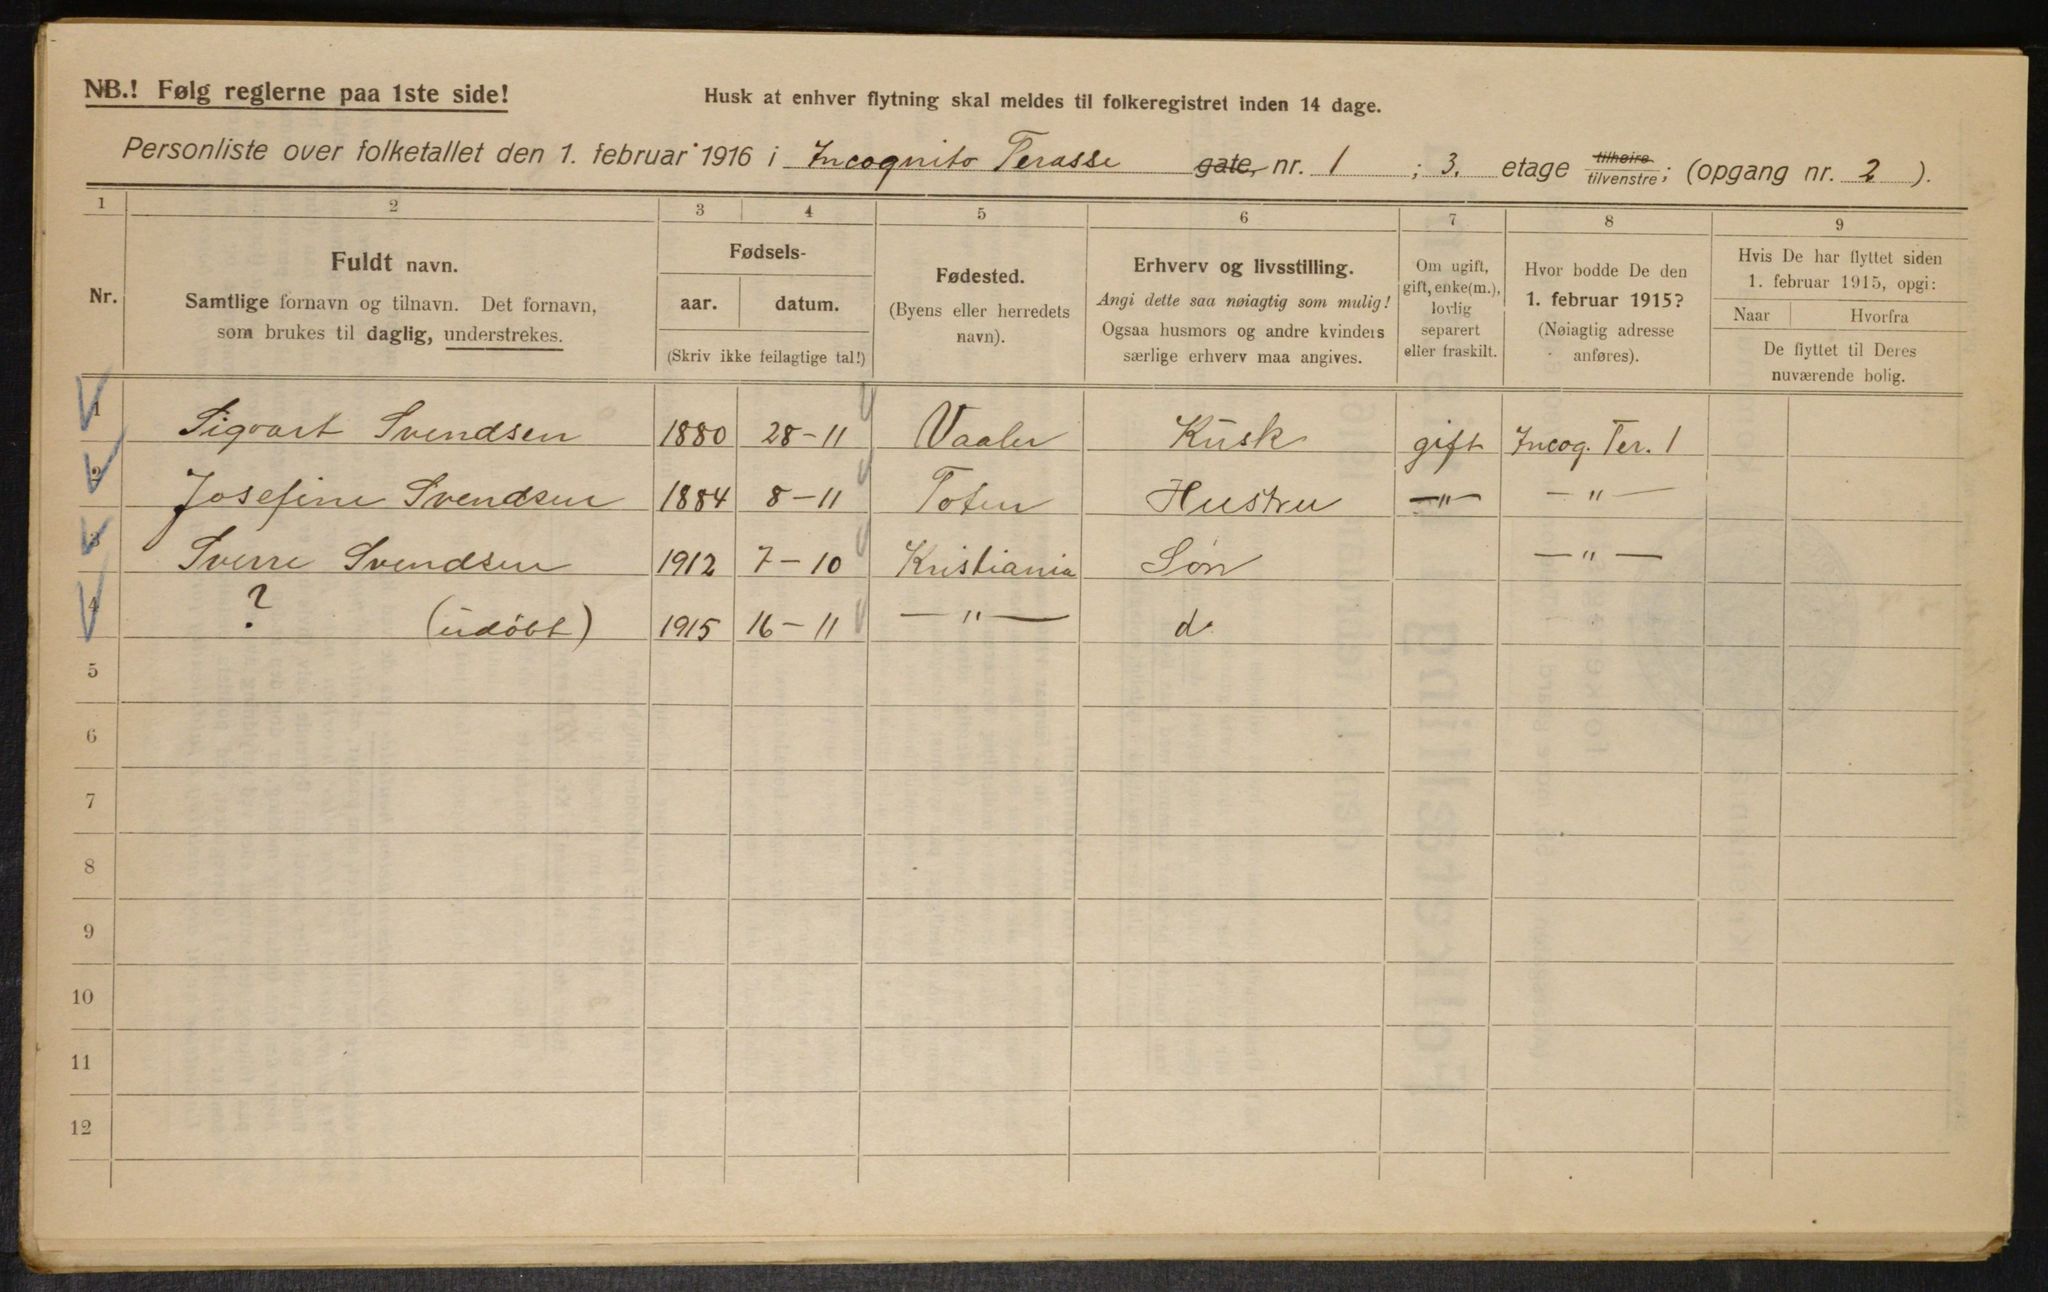 NB.! Følg reglerne paa 1ste side!
Husk at enhver flytning skal meldes til folkeregistret inden 14 dage.
Personliste over folketallet den 1. februar 1916 i Incognito Terasse gate, nr. 1 ; 3. etage tilhøire/tilvenstre; (opgang nr. 2 ).
1 2 3 4 5 6 7 8 9
Nr.
Fuldt navn.
Samtlige fornavn og tilnavn. Det fornavn,
som brukes til daglig, understrekes.
Fødsels-
aar. datum.
(Skriv ikke feilagtige tal!)
Fødested.
(Byens eller herredets
navn).
Erhverv og livsstilling.
Angi dette saa nøiagtig som mulig!
Ogsaa husmors og andre kvinders
særlige erhverv maa angives.
Om ugift,
gift, enke(m.),
lovlig
separert
eller fraskilt.
Hvor bodde De den
1. februar 1915?
(Nøiagtig adresse
anføres).
Hvis De har flyttet siden
1. februar 1915, opgi:
Naar Hvorfra
De flyttet til Deres
nuværende bolig.
1 Sigvart Svendsen 1880 28-11 Vaaler Kusk gift Incog. Ter. 1
2 Josefine Svendsen 1884 8-11 Toten Hustru —"— —"—
3 Sverre Svendsen 1912 7-10 Kristiania Søn —"—
4 ? (udöbt) 1915 16-11 —"— d.
5
6
7
8
9
10
11
12